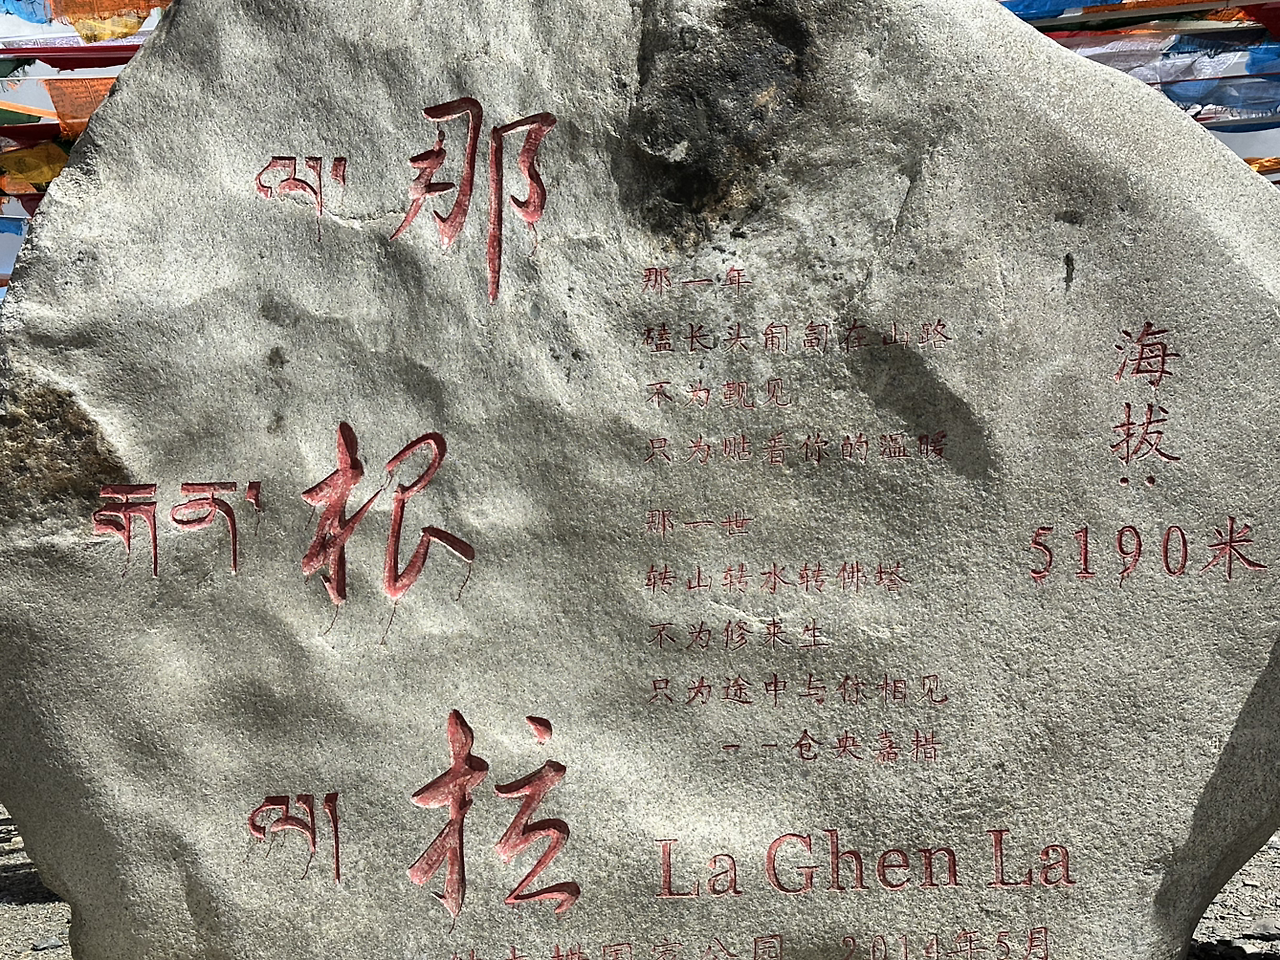 那
根
拉
ལ།
གན་
ལ།
那一年
磕长头匍匐在山路
不为觐见
只为贴着你的温暖
那一世
转山转水转佛塔
不为修来生
只为途中与你相见
--仓央嘉措
海
拔:
5190米
La Ghen La
纳木措国家公园 2014年5月